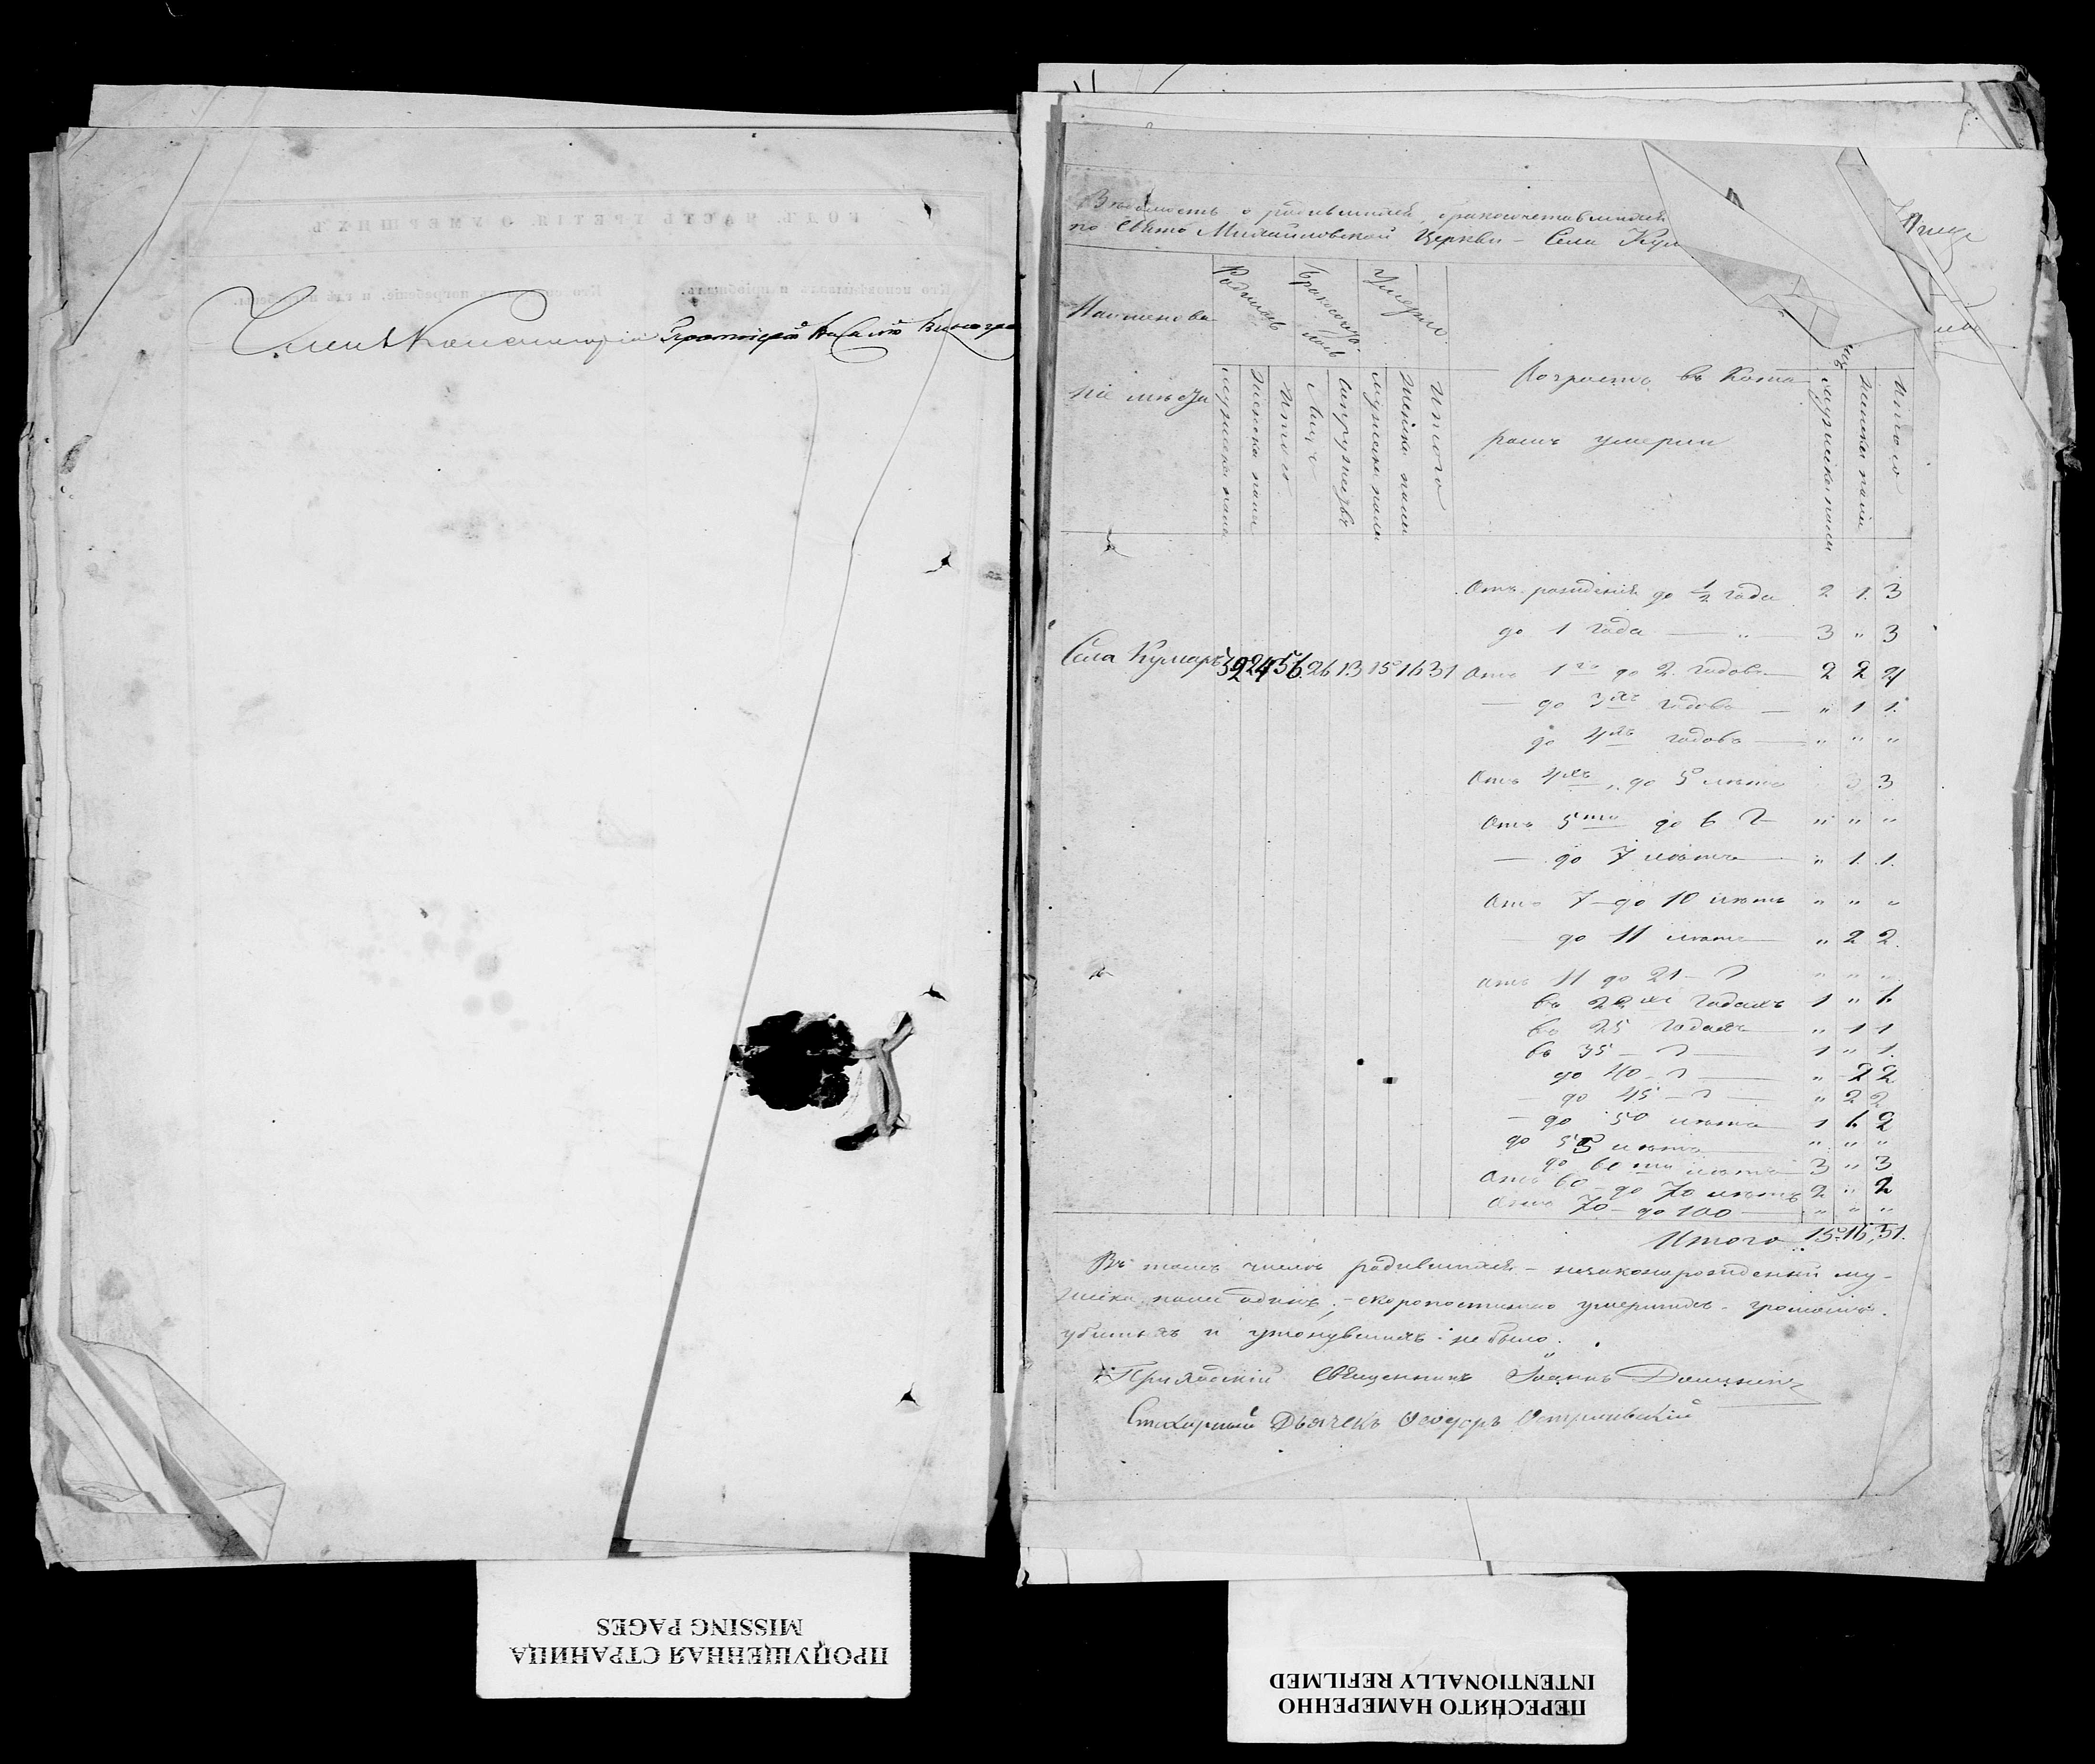 Членъ Консисторіи Протоіерей Василій
Вѣдомость о родившихся, бракосочетавшихся
по Свято Михайловской Церкви - Села Кум
Наименова
ніе мѣста
Родилось
Бракосочта
лось
Умерло
мужеска пола
женска пола
Итого
Лицъ
супружествъ
мужеска пола
женска пола
Итого
Возрастъ въ Кото
ромъ умерли
мужеска пола
женска пола
Итого
Отъ рожденія до ½ года 2 1. 3
до 1 года — „ — 3 „ 3
Села Кумаръ 32 24 56. 26 13 15 16 31 Отъ 1го до 2. годовъ — 2 2 4
— до 3хъ годовъ — „ 1 1.
до 4хъ годовъ — „ „ „
Отъ 4хъ „ до 5 лѣтъ 3 3
Отъ 5ти до 6 — „ „ „
— до 7 лѣтъ — „ 1. 1.
Отъ 7 — до 10 лѣтъ „ „ „
— до 11 лѣтъ — „ 2 2.
Отъ 11 до 21 — „ „ „
въ 22хъ годахъ 1 „ 1.
въ 25 годахъ — „ 1 1
въ 35 — 1 „ 1.
до 40 — „ 2 2
— до 45 — „ 2 2
— до 50 лѣтъ 1 1. 2
до 55 лѣтъ — „ „ „
до 60ти лѣтъ — 3 „ 3
Отъ 60 — до 70 лѣтъ 2 „ 2
Отъ 70 — до 100 — „ „ „
Итого 15. 16, 31.
Въ томъ числѣ родившихся - незаконорожденный му-
жеска пола одинъ; - скоропостижно умершихъ - громомъ
убитыхъ и утонувшихъ не было.
Приходскій Священникъ Іоаннъ
Стихарный Дьячекъ Ѳеодоръ Островскій
ПРОПУЩЕННАЯ СТРАНИЦА
MISSING PAGES
ПЕРЕСНЯТО НАМЕРЕННО
INTENTIONALLY REFILMED